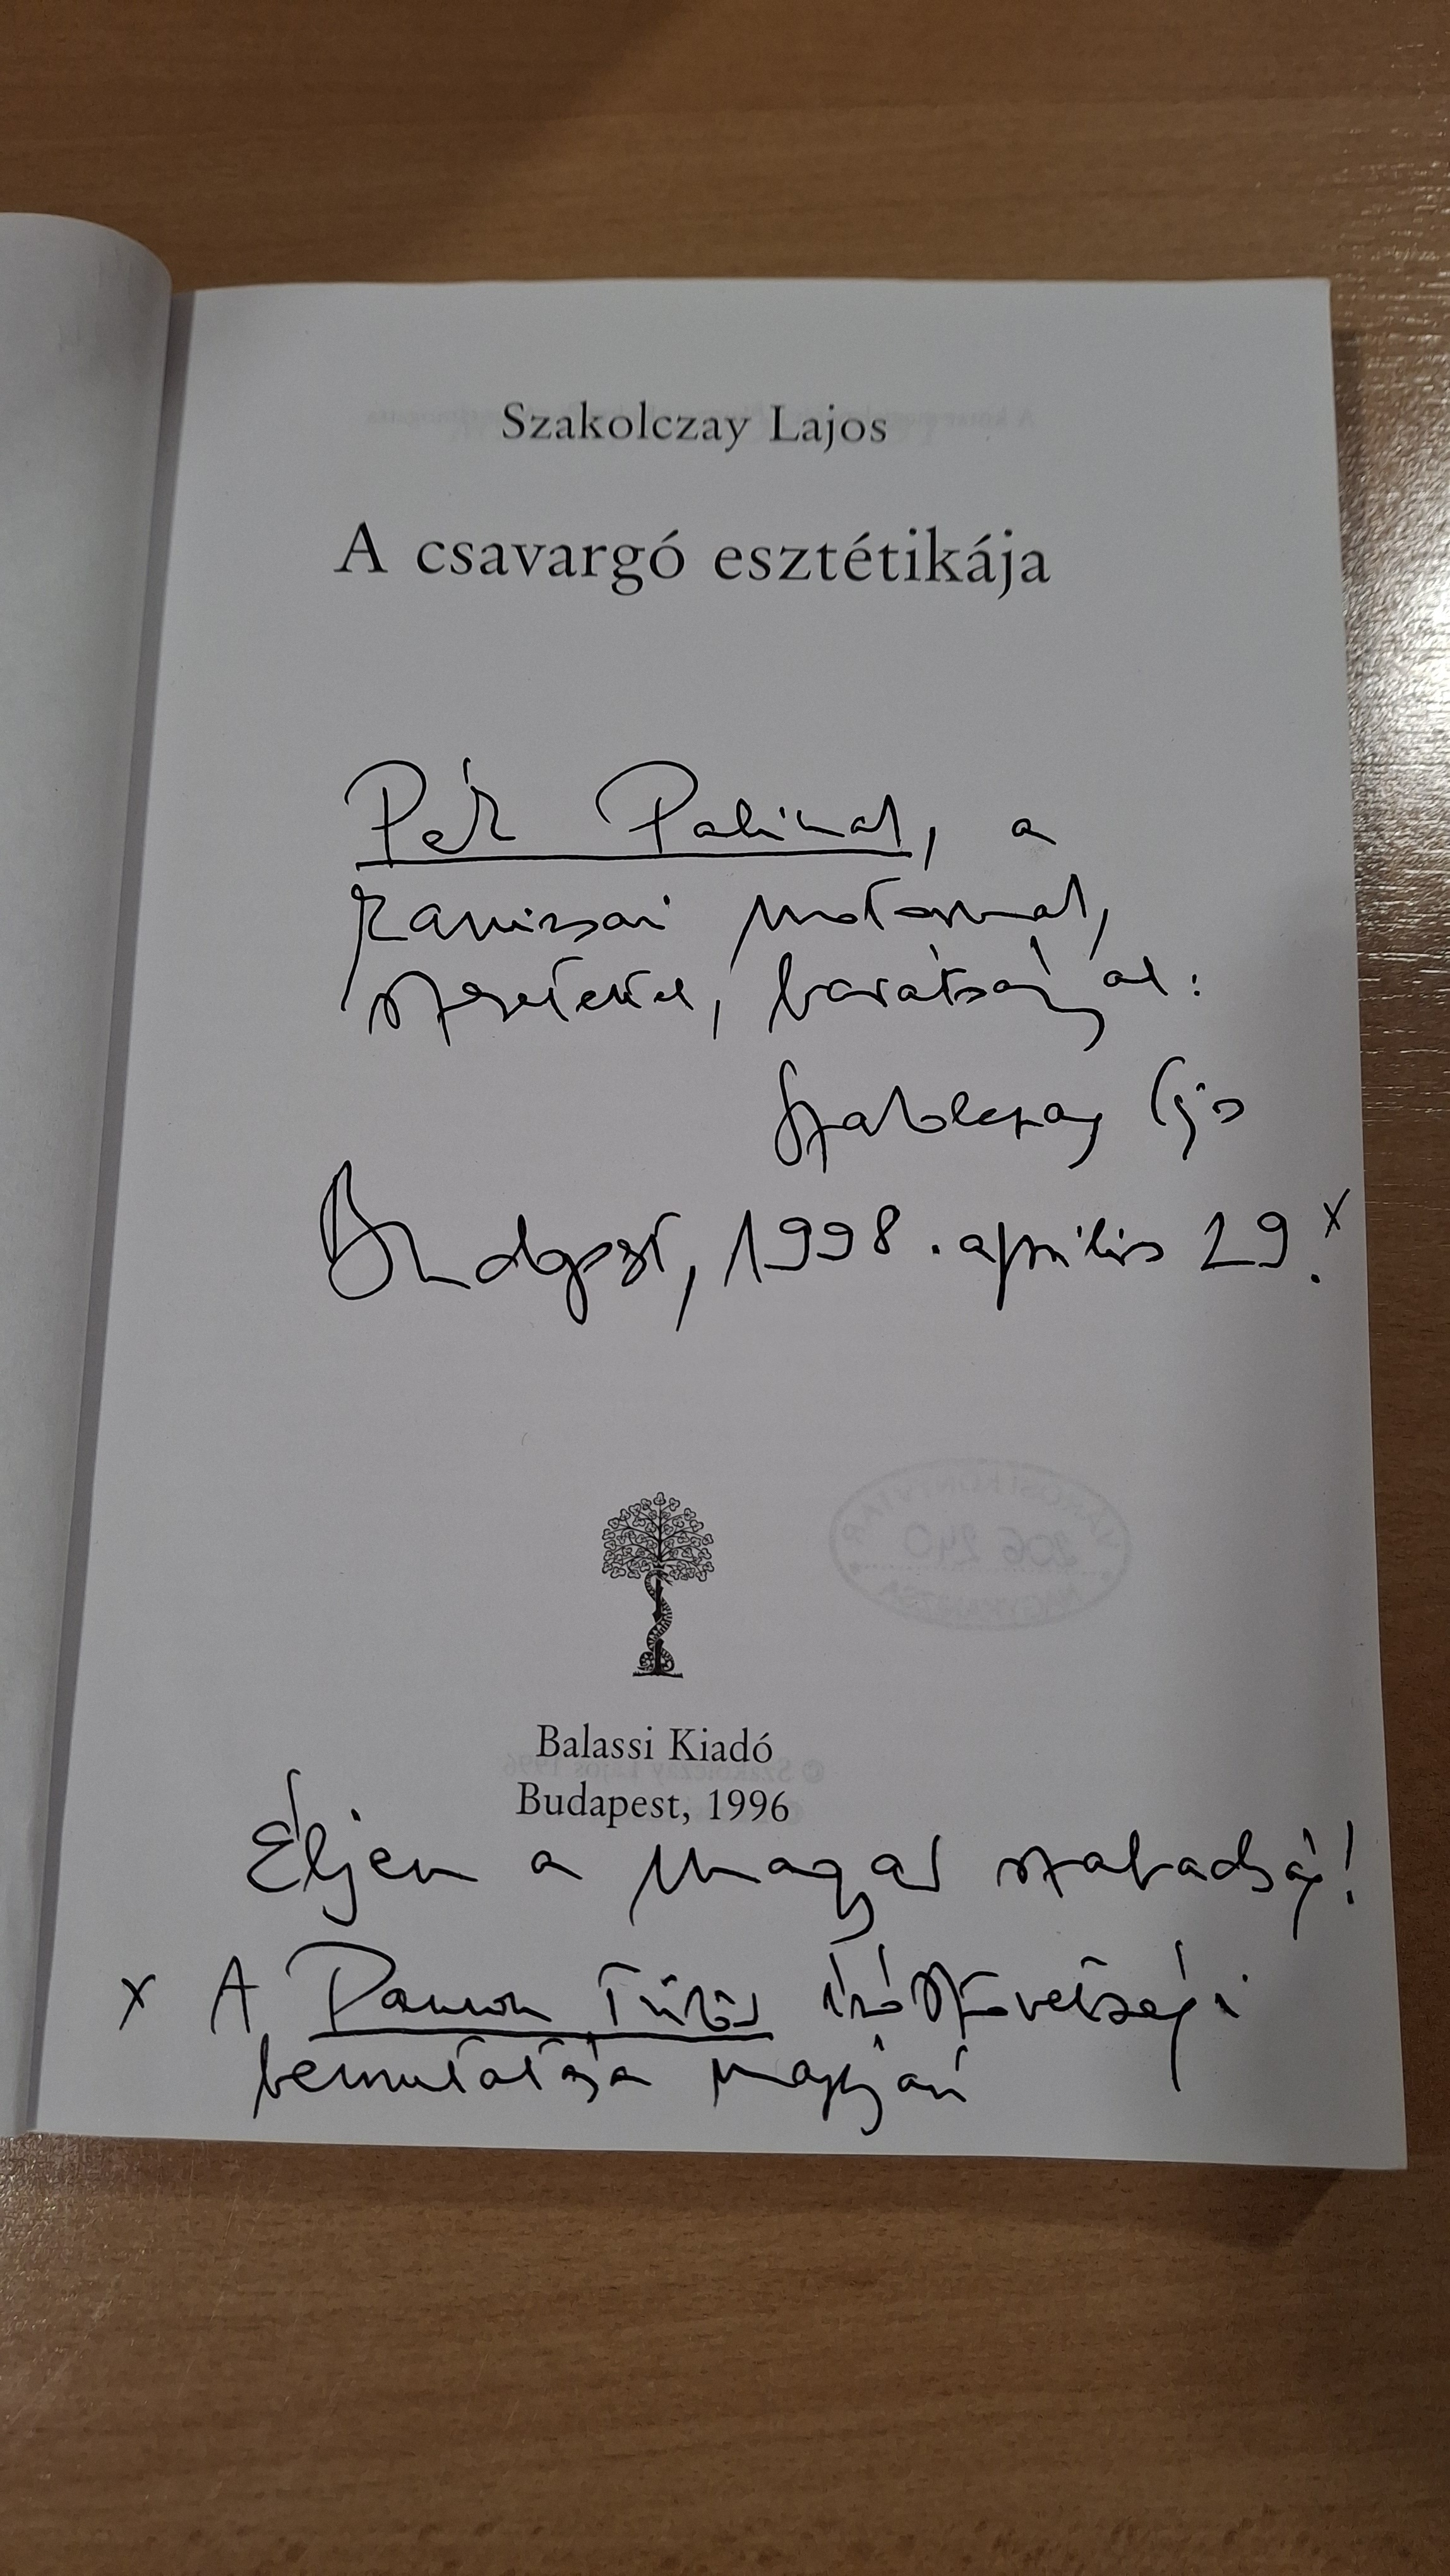 Szakolczay Lajos
A csavargó esztétikája
Pék Palinak, a
kanizsai motornak,
szeretettel, barátsággal:
Szakolczay Lajos
Budapest, 1998. április 29.x
Balassi Kiadó
Budapest, 1996
Éljen a magyar szabadság!
x A Pannon Tükör írószövetségi
bemutatója napján
VÁROSI KÖNYVTÁR
206 240
NAGYKANIZSA
© Szakolczay Lajos 1996